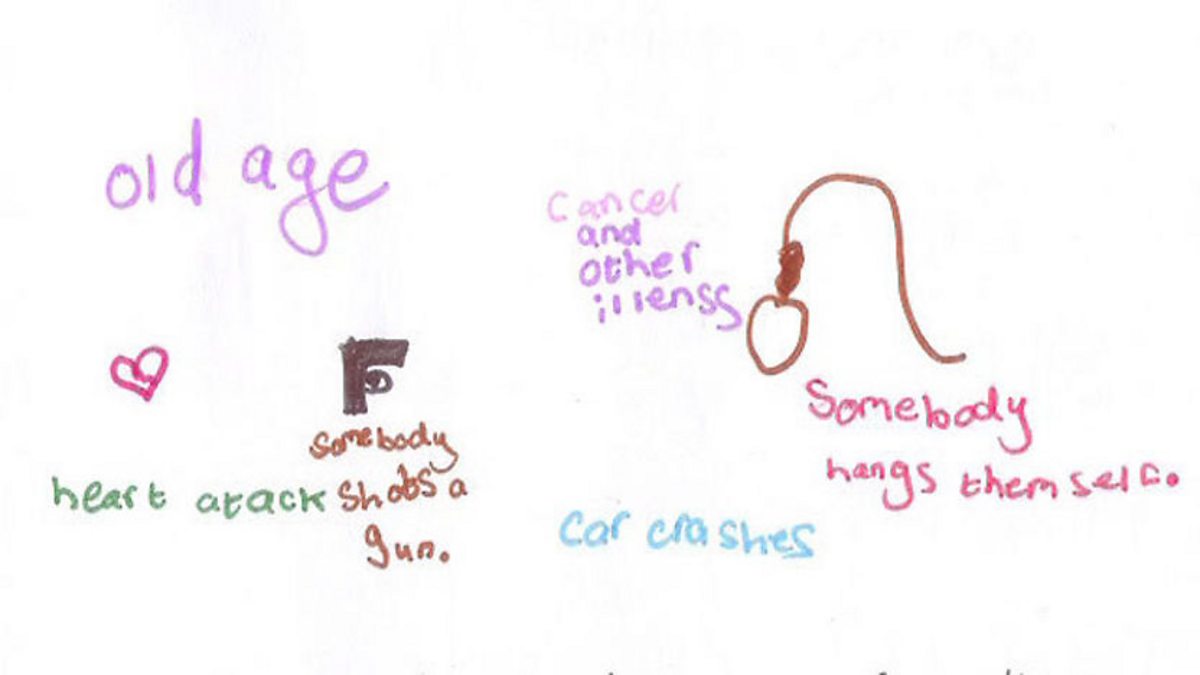 old age
Cancer
and
other
illenss
Somebody
shots a
gun.
heart atack
Somebody
hangs themself.
Car crashes